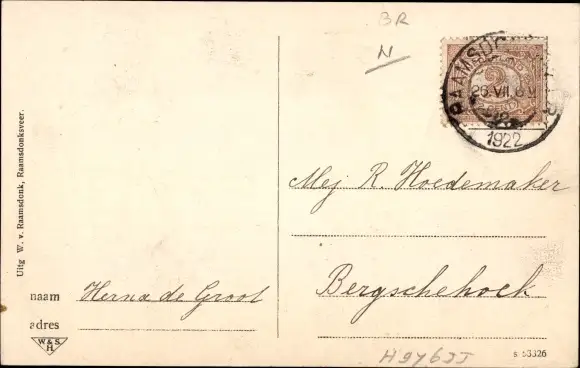 BR
N
RAAMSDONKSVEER
26.VII.
1922
2
CENT
Mej R. Hoedemaker
Bergschehoek
Uitg W. v. Raamsdonk, Raamsdonksveer.
naam Herna de Groot
adres
W & S
H
s. 53326